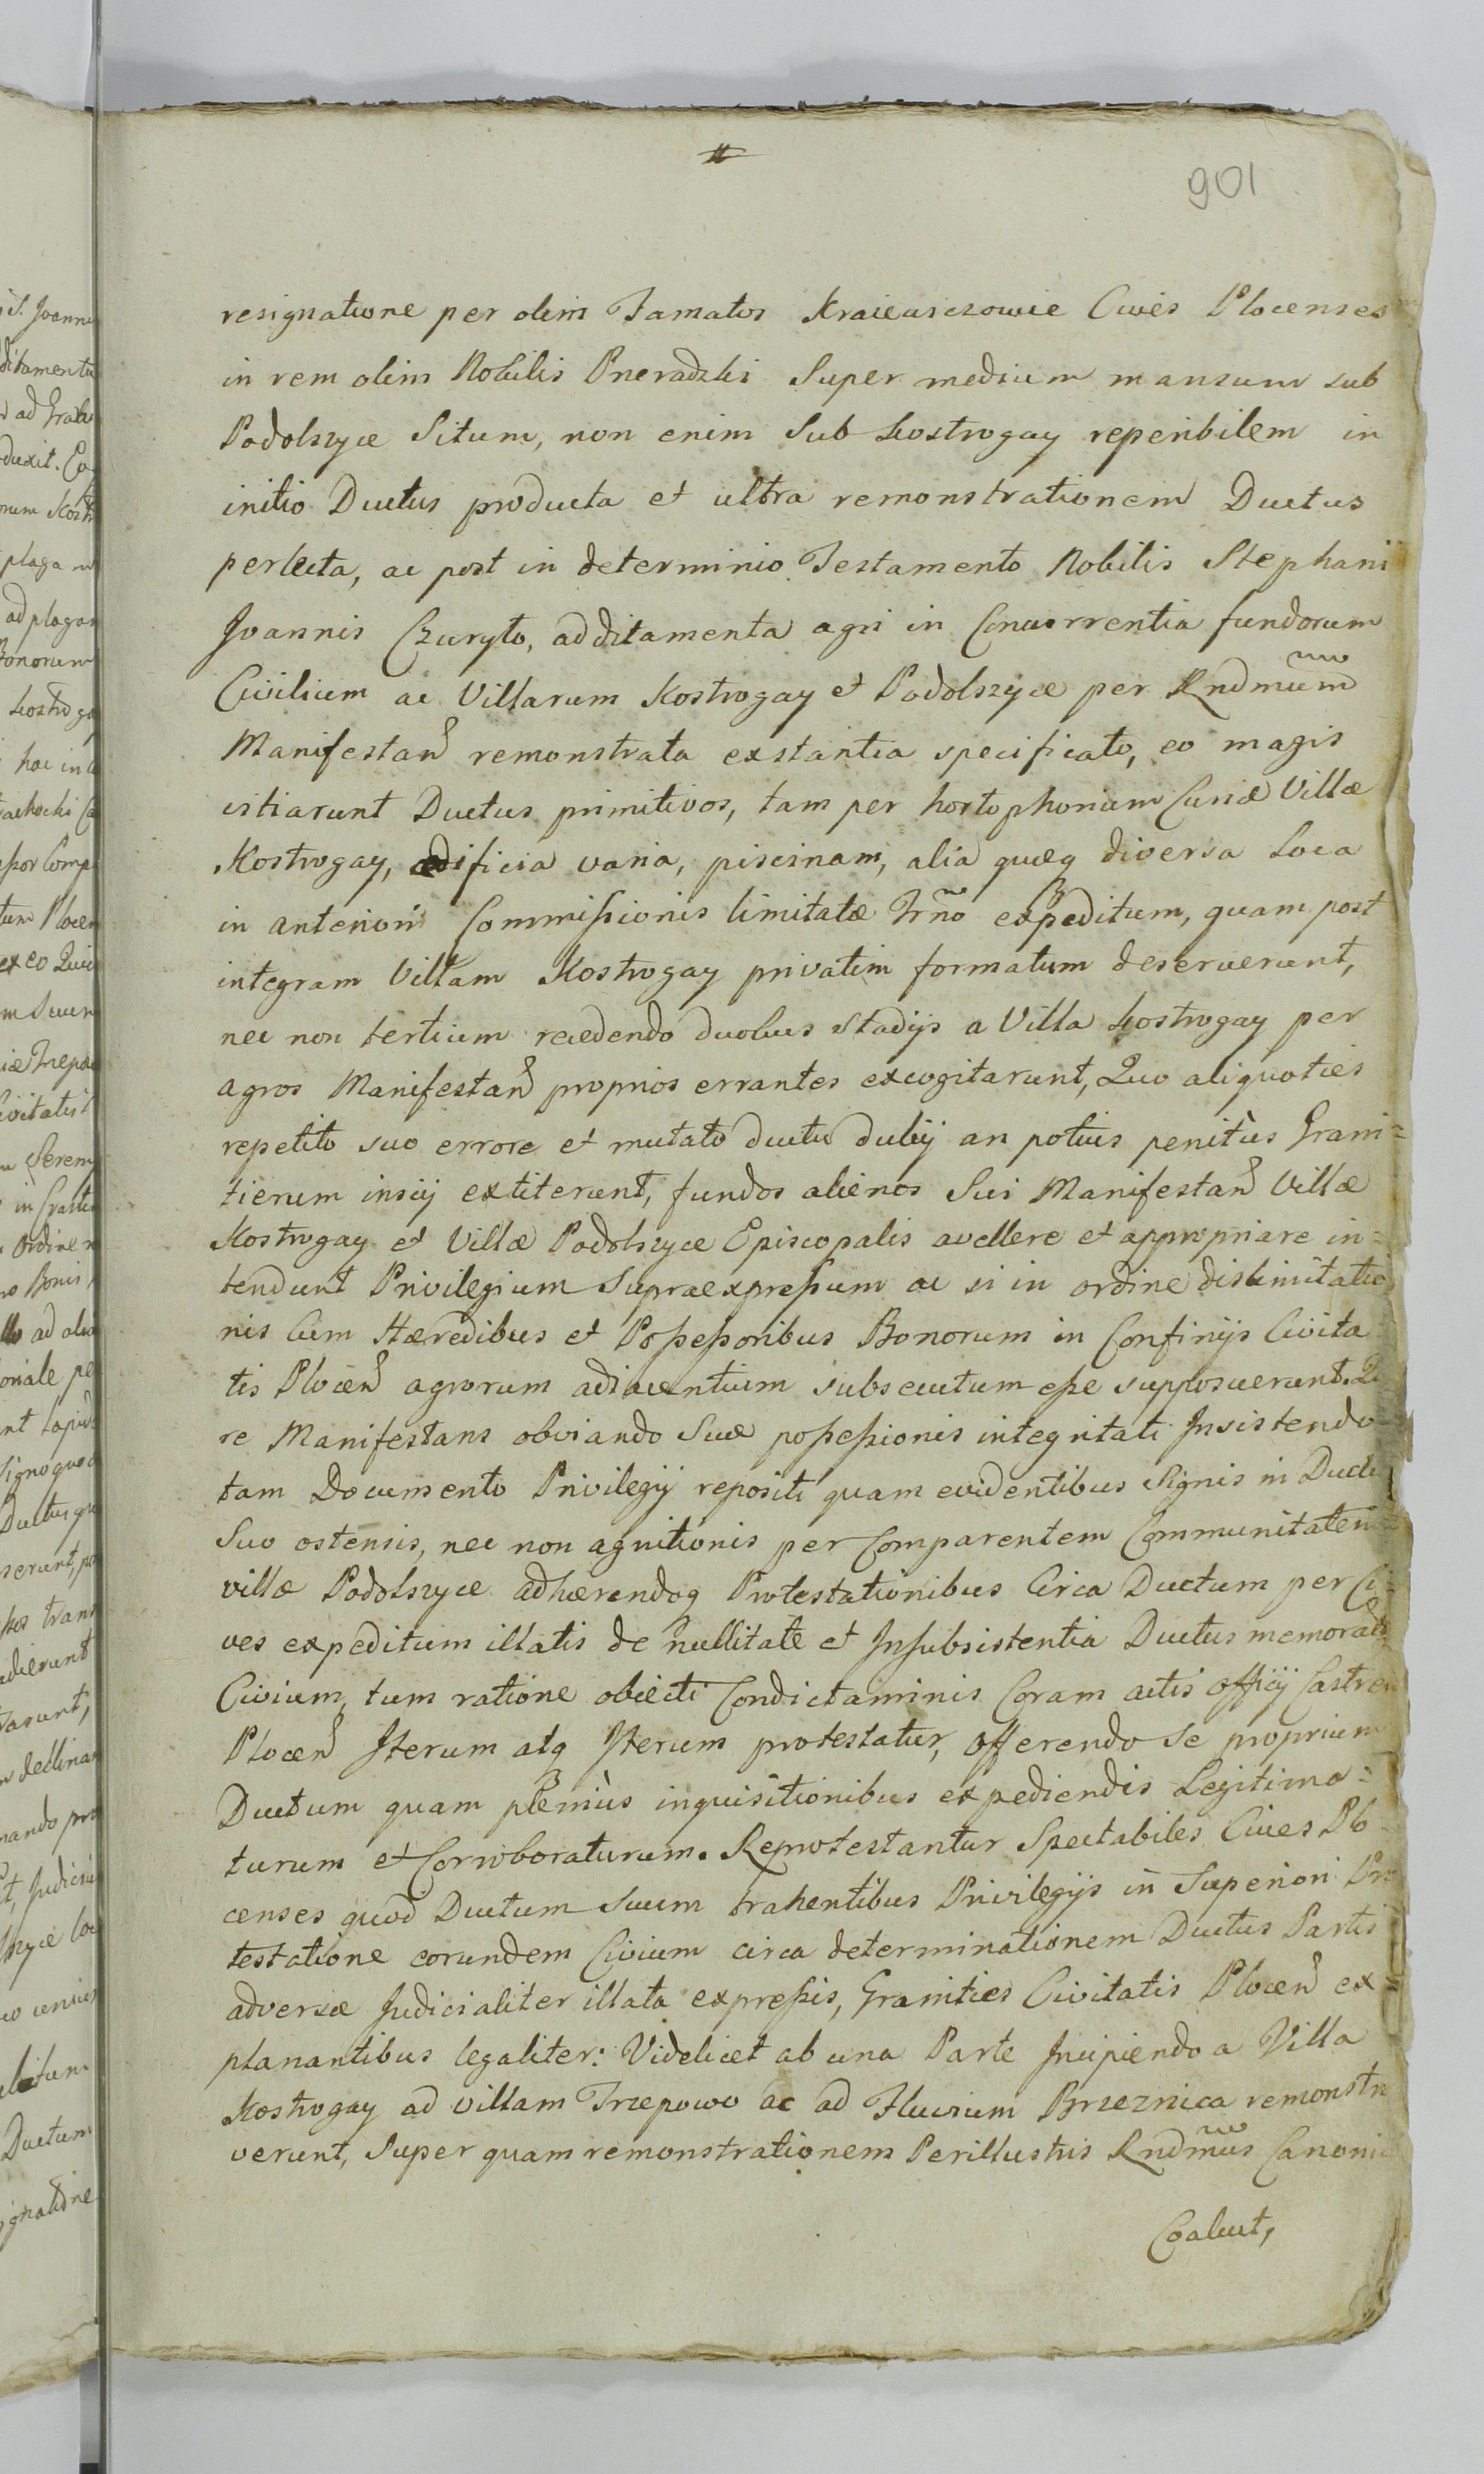 901
resignatione per olim Famatos Kraiewiczowie Cives Plocenses
in rem olim Nobilis Pneradzki Super medium mansum sub
Podolszyce Situm, non enim Sub Kostrogay reperibilem in
initio Ductus producta et ultra remonstrationem Ductus
perlecta, ac post in determinio Testamento Nobilis Stephani
Joannis Czuryło, additamenta agri in Concurrentia fundorum
Civilium ac Villarum Kostrogay et Podolszyce per Rndmum
Manifestan̄ remonstrata exstantia specificato, eo magis
vitiarunt Ductus primitivos, tam per hortophoriam Curiæ Villæ
Kostrogay, ædificia varia, piscinam, alia quæq diversa Loca
in anteriori Commissionis limitatæ Trno expeditum, quam post
integram Villam Kostrogay privatim formatum deseruerunt,
nec non tertium recedendo duobus stadijs a Villa Kostrogay per
agros Manifestan̄ proprios errantes excogitarunt, Quo aliquoties
repetito suo errore et mutato ductu dubij an potius penitùs Grani=
tierum inscij extiterunt, fundos alienos Sui Manifestan̄ Villæ
Kostrogay et Villæ Podolszyce Episcopalis avellere et appropriare in=
tendunt Privilegium Supraexpressum ac si in ordine dislimitatio
nis Cum Hæredibus et Possessoribus Bonorum in Confinijs Civita
tis Plocen̄ agrorum adiacentium subsecutum esse supposuerunt. Qua
re Manifestans obviando Suæ possessionis integritati Insistendo
tam Documento Privilegij repositi quam evidentibus Signis in Ductu
Suo ostensis, nec non agnitionis per Comparentem Communitatem
villæ Podolszyce adhærendoq Protestationibus Circa Ductum per Ci
ves expeditum illatis de nullitate et Insubsistentia Ductus memorati
Civium, tum ratione obiecti Condictaminis Coram actis officij Castren
Plocen̄ Iterum atq Iterum protestatur, Offerendo se proprium
Ductum quam pleniùs inquisitionibus expediendis Legitima=
turum et Corroboraturum. Reprotestantur Spectabiles Cives Plo
censes quod Ductum Suum trahentibus Privilegijs in Superiori Pro
testatione eorundem Civium circa determinationem Ductus Partis
adversæ Judicialiter illata expressis, Granities Civitatis Plocen̄ ex=
planantibus legaliter: Videlicet ab una Parte Incipiendo a Villa
Kostrogay ad villam Trzepowo ac ad Fluvium Brzeznica remonstra
verunt, Super quam remonstrationem Perillustris Rndmus Canonic
Coaluit,